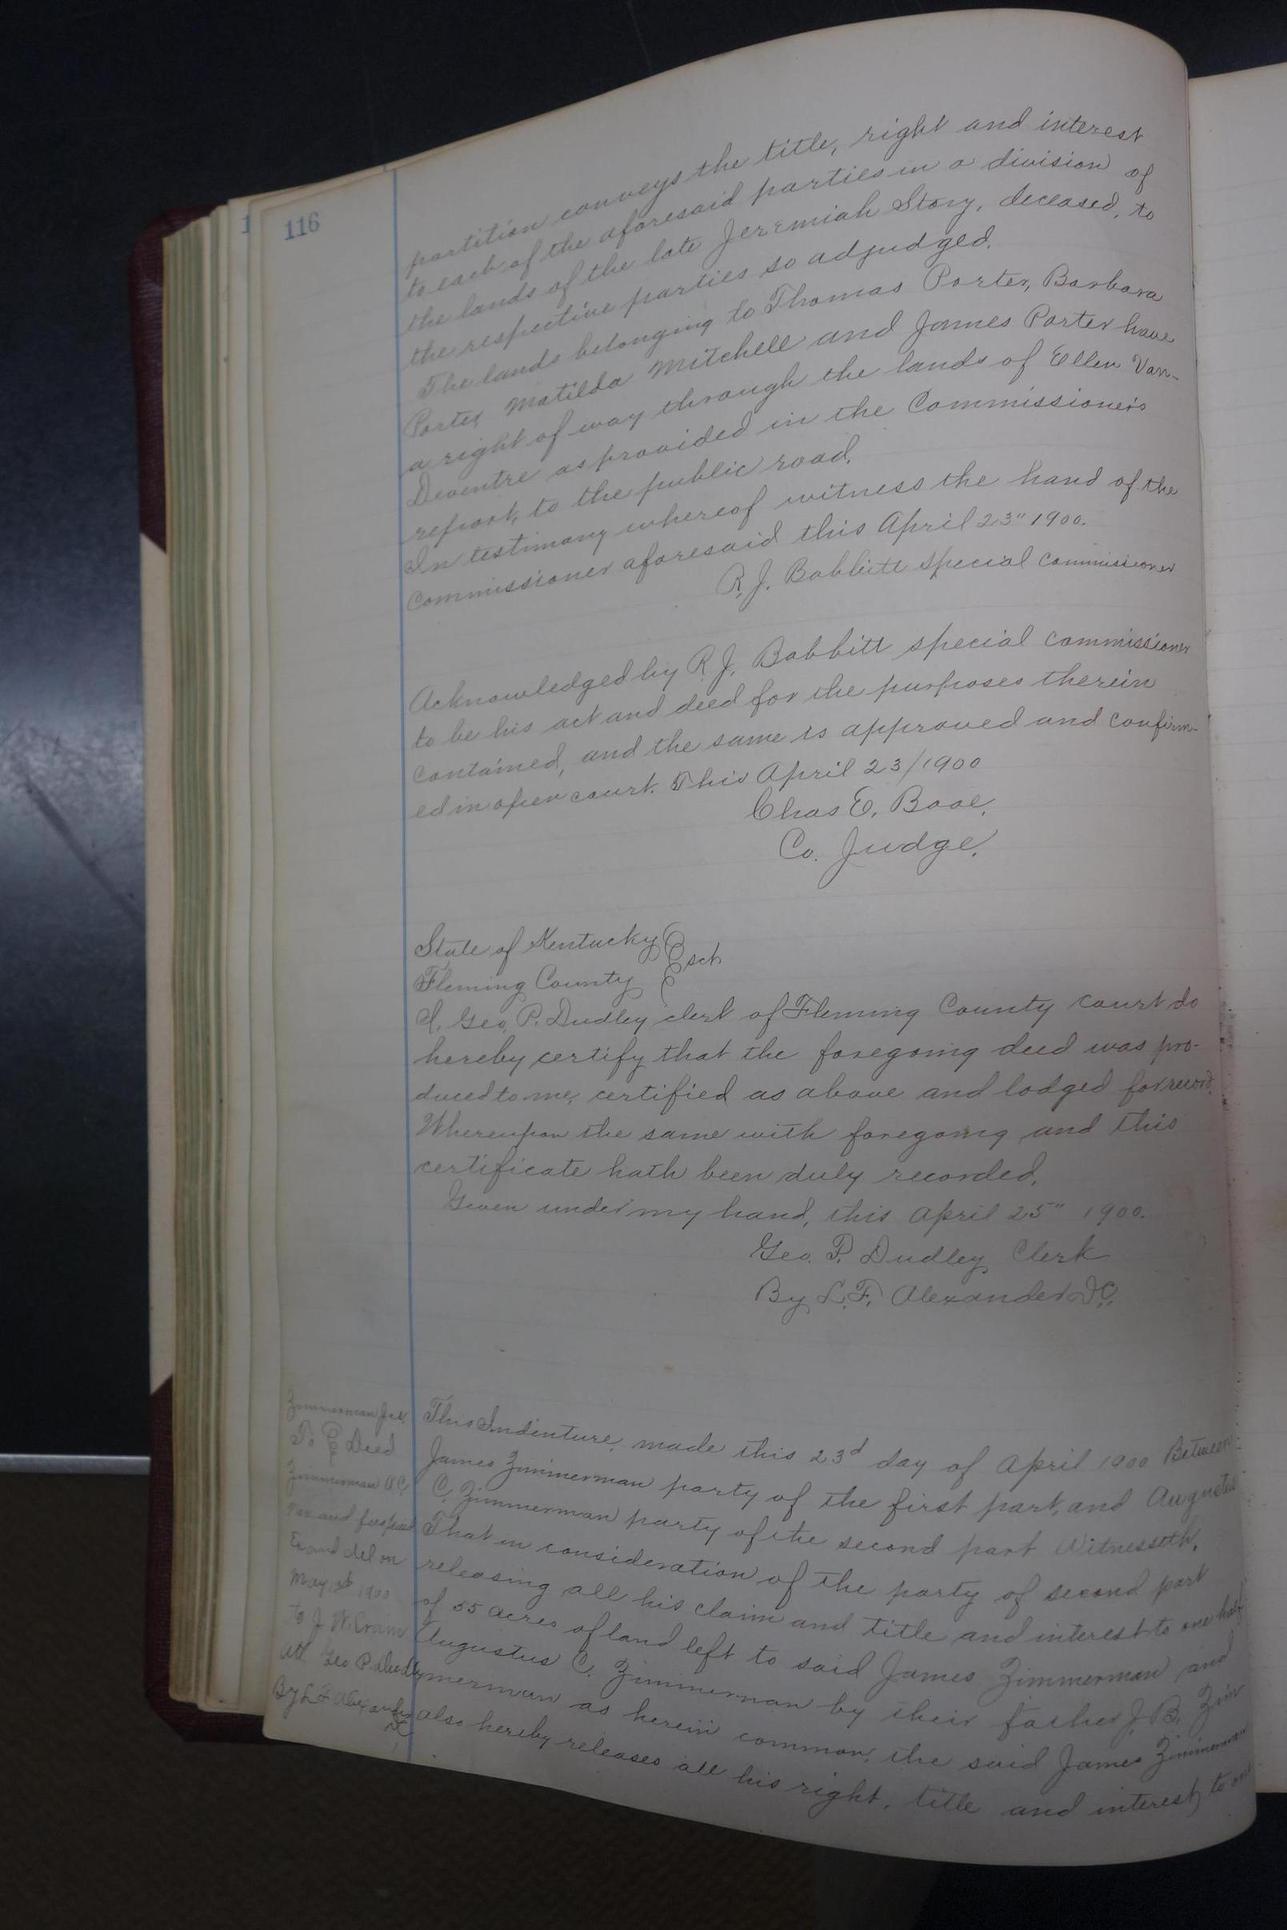 116
partition conveys the title, right and interest
to each of the aforesaid parties in a division of
the lands of the late Jeremiah Story, deceased, to
the respective parties so adjudged.
The lands belonging to Thomas Porter, Barbara
Porter, Matilda Mitchell and James Porter have
a right of way through the lands of Ellen Van-
Deventre as provided in the Commissioners
report, to the public road.
In testimony whereof witness the hand of the
Commissioner aforesaid this April 23" 1900.
R. J. Babbitt special commissioner
Acknowledged by R. J. Babbitt special commissioner
to be his act and deed for the purposes therein
contained, and the same is approved and confirm-
ed in open court. This April 23/1900
Chas E. Booe,
Co. Judge.
State of Kentucky
Fleming County sct
I, Geo. P. Dudley clerk of Fleming County court do
hereby certify that the foregoing deed was pro-
duced to me, certified as above and lodged for record.
Whereupon the same with foregoing and this
certificate hath been duly recorded.
Given under my hand, this April 25" 1900.
Geo. P. Dudley Clerk
By L. F. Alexander D.C.
Zimmerman Jas.
To Deed
Zimmerman A.C.
Tax and fees paid
Ex and del on
May 1900
to J. W. Crain
att Geo P. Dudley
By L F Alexander
DC
This Indenture, made this 23d day of April 1900 Between
James Zimmerman party of the first part, and Augustus
C. Zimmerman party of the second part Witnesseth,
That in consideration of the party of second part
releasing all his claim and title and interest to one half
of 55 acres of land left to said James Zimmerman and
Augustus C. Zimmerman by their father J. B. Zim
merman as herein common, the said James Zimmerman
also hereby releases all his right, title and interest to one